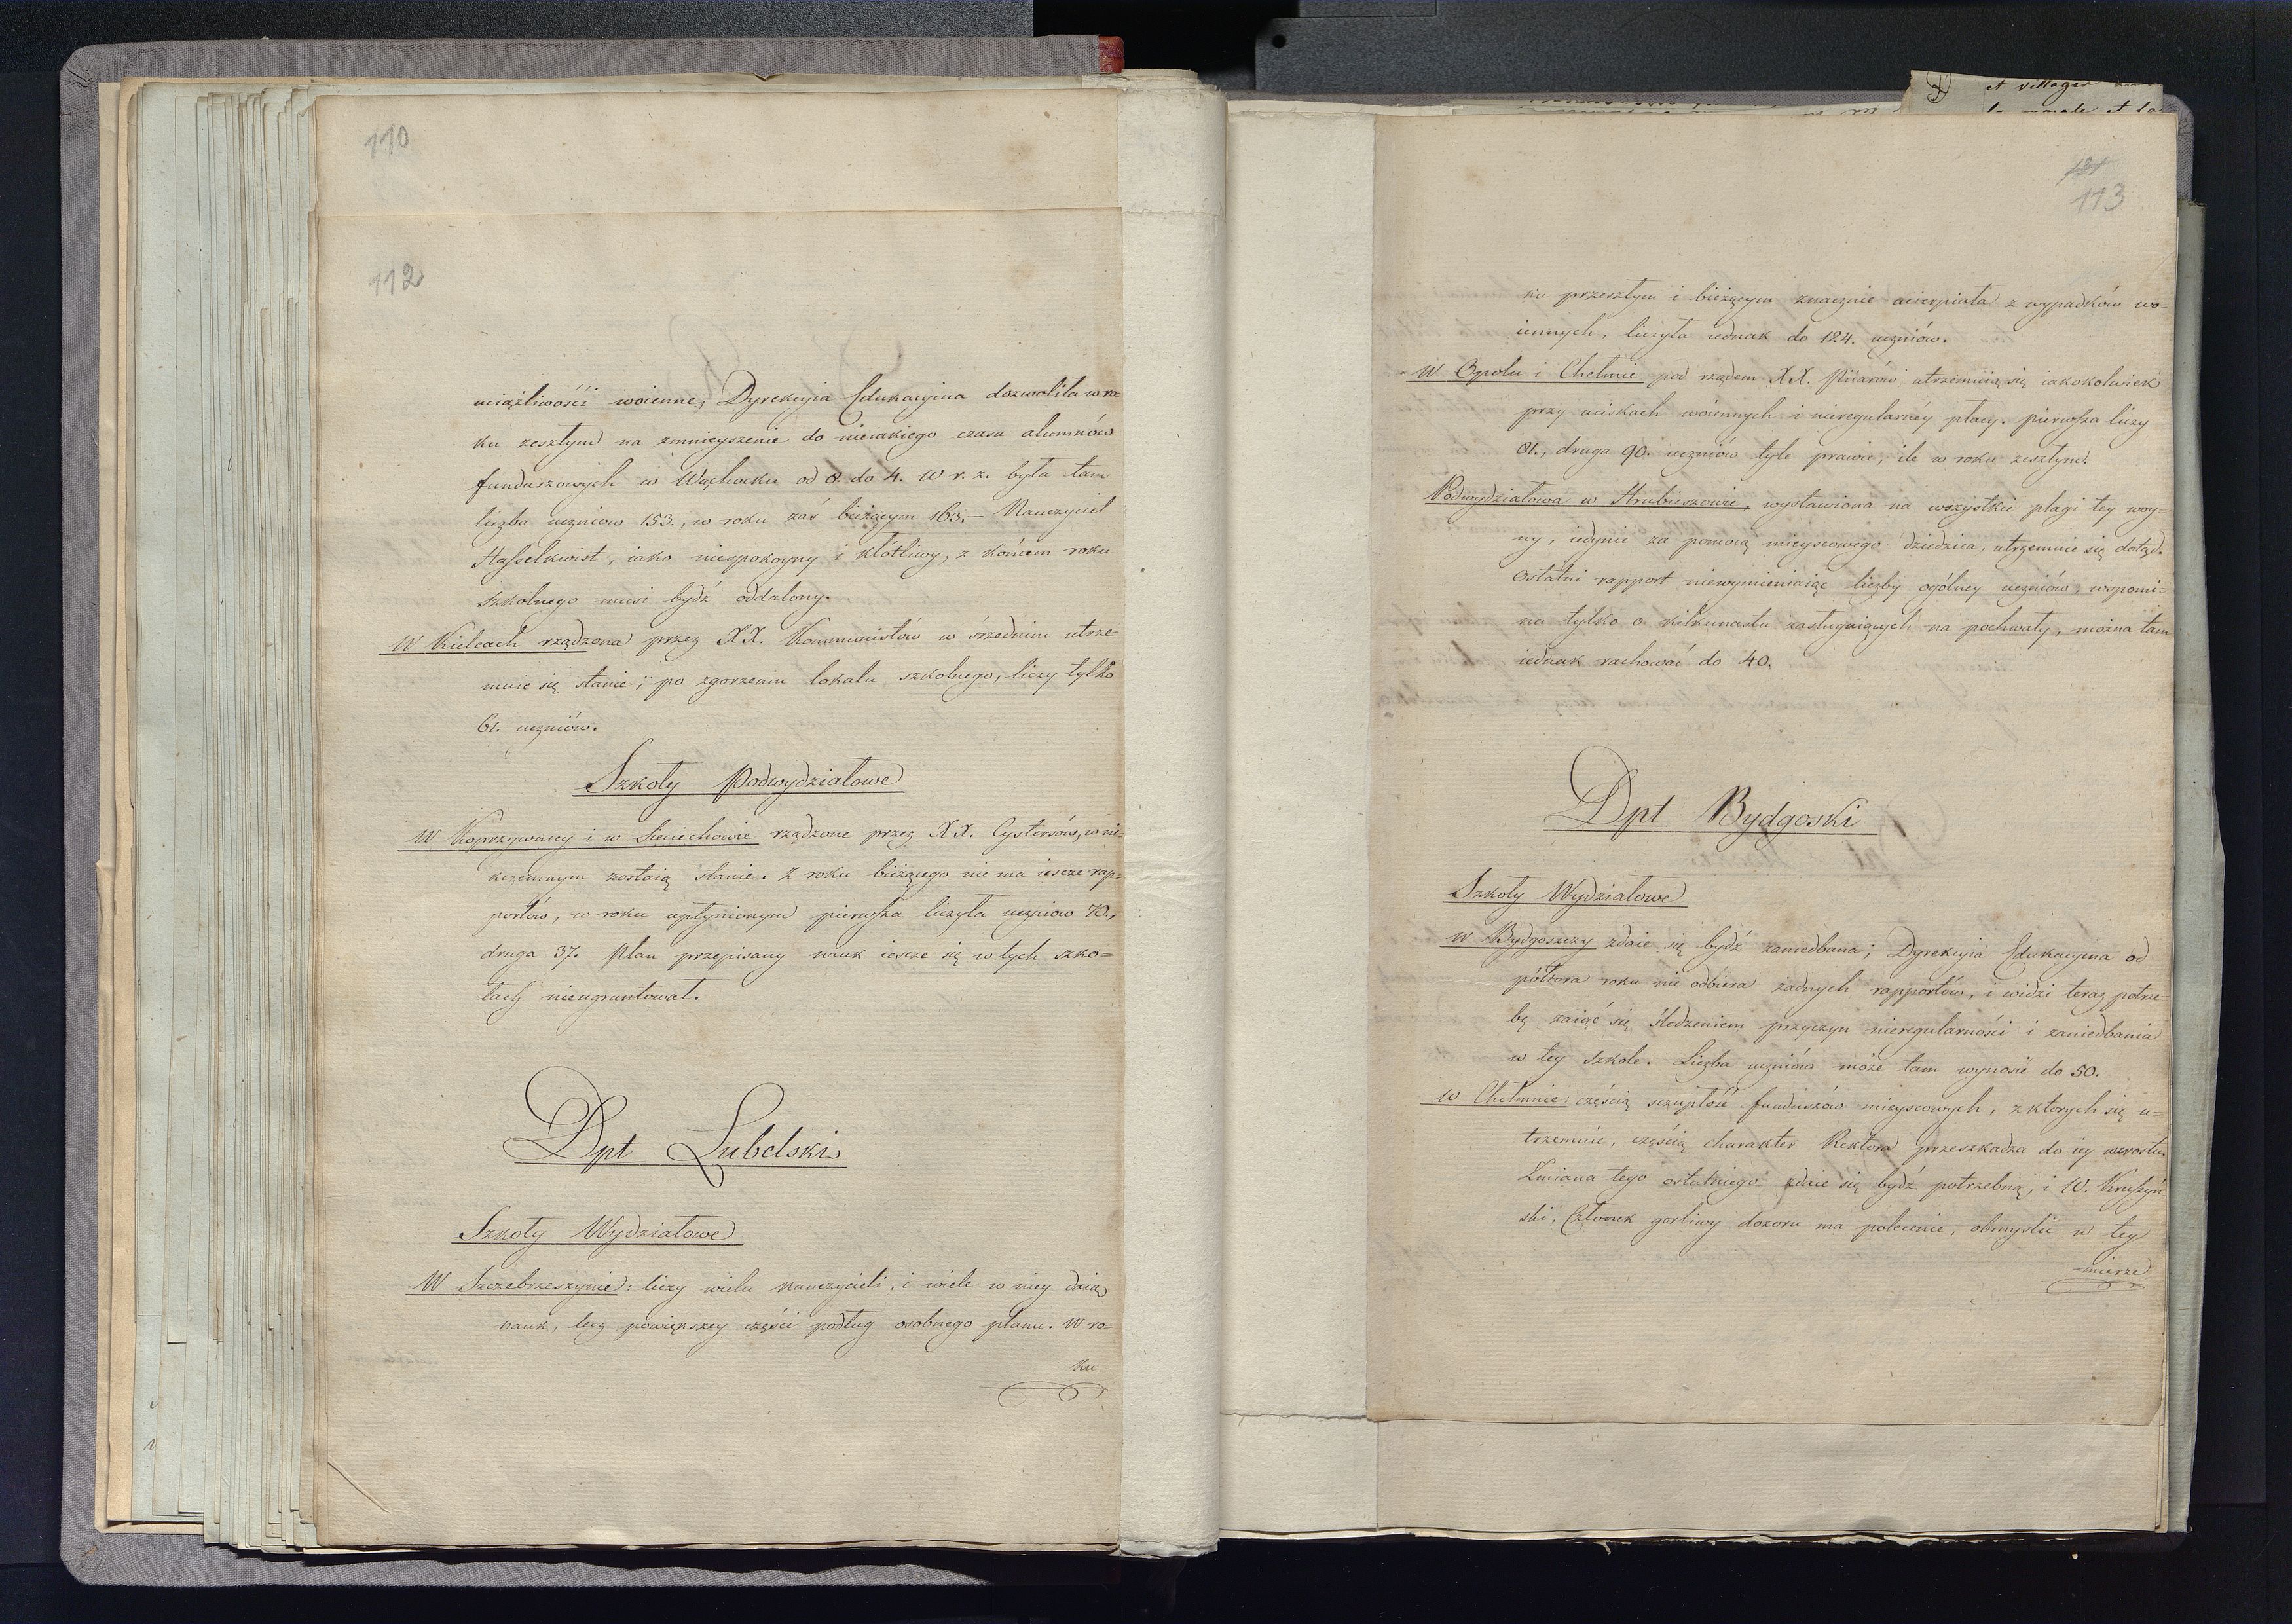 110
112
uciążliwości woienne, Dyrekcyia Edukacyina dozwoliła w ro-
ku zeszłym na zmnieyszenie do nieiakiego czasu alumnów
funduszowych w Wąchocku od 8. do 4. W r. z. była tam
liczba uczniow 153., w roku zaś bieżącym 163.– Nauczyciel
Hasselkwist, iako niespokoyny i kłótliwy, z końcem roku
szkolnego musi bydź oddalony.
W Kielcach rządzona przez XX. Kommunistów w średnim utrzy-
muie się stanie; po zgorzeniu lokalu szkolnego, liczy tylko
61. uczniów.
Szkoły Podwydziałowe
W Koprzywnicy i w Sieciechowie rządzone przez XX. Cystersów, w ni-
kczemnym zostaią stanie. Z roku bieżącego nie ma iescze rap-
portów, w roku upłynionym pierwsza liczyła uczniow 70.,
druga 37. Plan przepisany nauk iescze się w tych szko-
łach nieugruntował.
Dpt Lubelski
Szkoły Wydziałowe
W Szczebrzeszynie: liczy wielu nauczycieli, i wiele w niey daią
nauk, lecz powiększey części podług osobnego planu. W ro-
ku
et villages
la morale et la
181
113
ku przeszłym i bieżącym znacznie ucierpiała z wypadków wo-
iennych, liczyła iednak do 124. uczniów.
W Opolu i Chełmie pod rządem XX. Piiarów utrzymuią się iakokolwiek
przy uciskach woiennych i nieregularnéy płacy. pierwsza liczy
81., druga 90. uczniów tyle prawie, ile w roku zeszłym.
Podwydziałowa w Hrubieszowie, wystawiona na wszystkie plagi tey woy-
ny, iedynie za pomocą mieyscowego dziedzica, utrzymuie się dotąd.
Ostatni rapport niewymieniaiąc liczby ogólney uczniów, wspomi-
na tylko o kilkunastu zasługuiących na pochwały, można tam
iednak rachować do 40.
Dpt Bydgoski
Szkoły Wydziałowe
w Bydgosczy zdaie się bydź zaniedbana; Dyrekcyia Edukacyina od
półtora roku nie odbiera żadnych rapportów, i widzi teraz potrze-
bę zaiąć się śledzeniem przyczyn nieregularności i zaniedbania
w tey szkole. Liczba uczniów może tam wynosić do 50.
w Chełmnie: częścią szczupłość funduszów mieyscowych, z ktorych się u-
trzymuie, częścią charakter Rektora przeszkadza do iey wzrostu.
Zmiana tego ostatniego zdaie się bydź potrzebną, i W. Kruszyń-
ski, Członek gorliwy dozoru ma polecenie, obmyślić w tey
mierze